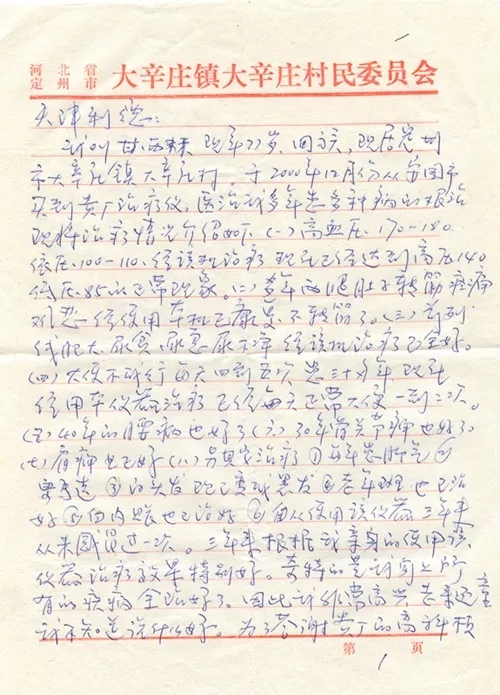 河北省
定州市 大辛庄镇大辛庄村民委员会
天津利德：
我叫甘西来 现年77岁，回族，现居定州
市大辛庄镇大辛庄村 于2000年12月份从安国市
买到贵厂治疗仪。医治我多年患多种病的根治
现将治疗情况介绍如下(一)高血压，170-180
低压，100-110，经该机治疗 现在已经达到高压140
低压，85的正常现象。(二)多年两腿肚子转筋疼痛
难忍 经使用本机已康复 不转筋了。(三)前列
线肥大、尿频、尿急尿不净 经该机治疗已全好。
(四)大便不正行每天四到五次 患三十多年 现在
使用本仪器治疗 已经每天正常大便一到二次。
(五)40年的腰病也好了(六)30年骨关节病也好了
(七)肩病也已好(八)另其它治疗①多年患脚气②
③白头发 现已变成黑发④老年斑 也已治
好⑤白内障也已治好⑥自从使用该仪器 三年来
从未感冒过一次。三年来根据我亲身的使用该
仪器治疗效果特别好。奇特的是我身上所
有的疾病全治好了。因此我非常高兴
我不知道说什么好。为了答谢贵厂的高科技
第 页
1